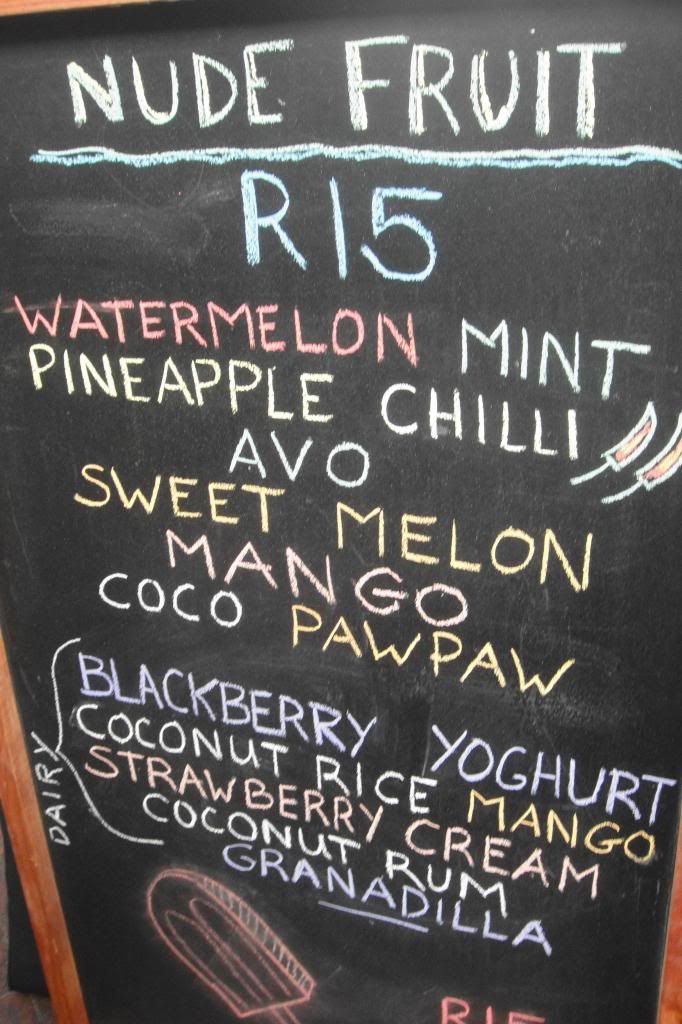 NUDE FRUIT
R15
WATERMELON MINT
PINEAPPLE CHILLI
AVO
SWEET MELON
MANGO
COCO PAWPAW
DAIRY
BLACKBERRY YOGHURT
COCONUT RICE MANGO
STRAWBERRY CREAM
COCONUT RUM
GRANADILLA
R15